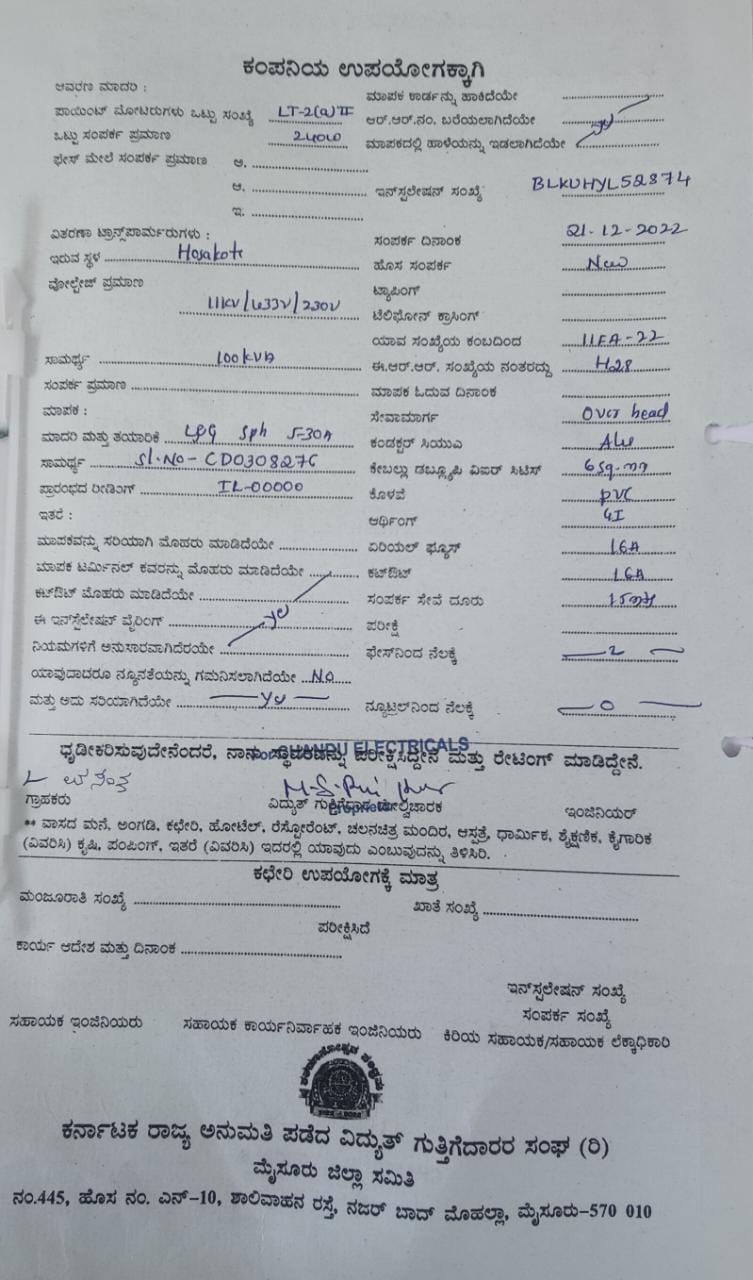 ಕಂಪನಿಯ ಉಪಯೋಗಕ್ಕಾಗಿ
ಆವರಣ ಮಾದರಿ : ಮಾಪಕ ಕಾರ್ಡನ್ನು ಹಾಕಿದೆಯೇ
ಪಾಯಿಂಟ್ ಮೋಟಿರುಗಳು ಒಟ್ಟು ಸಂಖ್ಯೆ LT-2(a)II ಆರ್.ಆರ್.ನಂ. ಬರೆಯಲಾಗಿದೆಯೇ
ಒಟ್ಟು ಸಂಪರ್ಕ ಪ್ರಮಾಣ 2400 ಮಾಪಕದಲ್ಲಿ ಹಾಳೆಯನ್ನು ಇಡಲಾಗಿದೆಯೇ yes
ಫೇಸ್ ಮೇಲೆ ಸಂಪರ್ಕ ಪ್ರಮಾಣ ಅ.
ಆ. ಇನ್‌ಸ್ಟಲೇಷನ್ ಸಂಖ್ಯೆ BLKUHYL52874
ಇ.
ವಿತರಣಾ ಟ್ರಾನ್ಸ್‌ಪಾರ್ಮರುಗಳು : ಸಂಪರ್ಕ ದಿನಾಂಕ 21-12-2022
ಇರುವ ಸ್ಥಳ Hosakote ಹೊಸ ಸಂಪರ್ಕ New
ವೋಲ್ಟೇಜ್ ಪ್ರಮಾಣ 11KV/433V/230V ಟ್ಯಾಪಿಂಗ್
ಟೆಲಿಫೋನ್ ಕ್ರಾಸಿಂಗ್
ಯಾವ ಸಂಖ್ಯೆಯ ಕಂಬದಿಂದ 11FA-22
ಸಾಮರ್ಥ್ಯ 100KVA ಈ.ಆರ್.ಆರ್. ಸಂಖ್ಯೆಯ ನಂತರದ್ದು H28
ಸಂಪರ್ಕ ಪ್ರಮಾಣ ಮಾಪಕ ಓದುವ ದಿನಾಂಕ
ಮಾಪಕ : ಸೇವಾಮಾರ್ಗ Over head
ಮಾದರಿ ಮತ್ತು ತಯಾರಿಕೆ L&G Sph 5-30A ಕಂಡಕ್ಟರ್ ಸಿಯುಎ Alu
ಸಾಮರ್ಥ್ಯ Sl.No-CD0308276 ಕೇಬಲ್ಲು ಡಬ್ಲ್ಯೂಪಿ ವಿಐರ್ ಸಿಟಿಸ್ 6sq.mm
ಪ್ರಾರಂಭದ ರೀಡಿಂಗ್ IL-00000 ಕೊಳವೆ PVC
ಇತರೆ : ಆರ್ಥಿಂಗ್ GI
ಮಾಪಕವನ್ನು ಸರಿಯಾಗಿ ಮೊಹರು ಮಾಡಿದೆಯೇ ಏರಿಯಲ್ ಫ್ಯೂಸ್ 16A
ಮಾಪಕ ಟರ್ಮಿನಲ್ ಕವರನ್ನು ಮೊಹರು ಮಾಡಿದೆಯೇ ಕಟ್‌ಔಟ್ 16A
ಕಟ್‌ಔಟ್ ಮೊಹರು ಮಾಡಿದೆಯೇ ಸಂಪರ್ಕ ಸೇವೆ ದೂರು
ಈ ಇನ್‌ಸ್ಟಲೇಷನ್ ವೈರಿಂಗ್ yes ಪರೀಕ್ಷೆ
ನಿಯಮಗಳಿಗೆ ಅನುಸಾರವಾಗಿದೆರಯೇ ಫೇಸ್‌ನಿಂದ ನೆಲಕ್ಕೆ 2
ಯಾವುದಾದರೂ ನ್ಯೂನತೆಯನ್ನು ಗಮನಿಸಲಾಗಿದೆಯೇ No
ಮತ್ತು ಅದು ಸರಿಯಾಗಿದೆಯೇ yes ನ್ಯೂಟ್ರಲ್‌ನಿಂದ ನೆಲಕ್ಕೆ 0
ಧೃಡೀಕರಿಸುವುದೇನೆಂದರೆ, ನಾನು ಸ್ಥಾವರವನ್ನು ಪರೀಕ್ಷಿಸಿದ್ದೇನೆ ಮತ್ತು ರೇಟಿಂಗ್ ಮಾಡಿದ್ದೇನೆ.
For CHANDU ELECTRICALS
ವಸಂತ
ಗ್ರಾಹಕರು ವಿದ್ಯುತ್ ಗುತ್ತಿಗೆದಾರ ಮೇಲ್ವಿಚಾರಕ ಇಂಜಿನಿಯರ್
Proprietor
** ವಾಸದ ಮನೆ, ಅಂಗಡಿ, ಕಛೇರಿ, ಹೋಟೆಲ್, ರೆಸ್ಟೋರೆಂಟ್, ಚಲನಚಿತ್ರ ಮಂದಿರ, ಆಸ್ಪತ್ರೆ, ಧಾರ್ಮಿಕ, ಶೈಕ್ಷಣಿಕ, ಕೈಗಾರಿಕ
(ವಿವರಿಸಿ) ಕೃಷಿ, ಪಂಪಿಂಗ್, ಇತರೆ (ವಿವರಿಸಿ) ಇದರಲ್ಲಿ ಯಾವುದು ಎಂಬುವುದನ್ನು ತಿಳಿಸಿರಿ.
ಕಛೇರಿ ಉಪಯೋಗಕ್ಕೆ ಮಾತ್ರ
ಮಂಜೂರಾತಿ ಸಂಖ್ಯೆ ಖಾತೆ ಸಂಖ್ಯೆ
ಪರೀಕ್ಷಿಸಿದೆ
ಕಾರ್ಯ ಆದೇಶ ಮತ್ತು ದಿನಾಂಕ
ಇನ್‌ಸ್ಟಲೇಷನ್ ಸಂಖ್ಯೆ
ಸಂಪರ್ಕ ಸಂಖ್ಯೆ
ಸಹಾಯಕ ಇಂಜಿನಿಯರು ಸಹಾಯಕ ಕಾರ್ಯನಿರ್ವಾಹಕ ಇಂಜಿನಿಯರು ಕಿರಿಯ ಸಹಾಯಕ/ಸಹಾಯಕ ಲೆಕ್ಕಾಧಿಕಾರಿ
ಕರ್ನಾಟಕ ರಾಜ್ಯ ಅನುಮತಿ ಪಡೆದ ವಿದ್ಯುತ್ ಗುತ್ತಿಗೆದಾರರ ಸಂಘ (ರಿ)
ಮೈಸೂರು ಜಿಲ್ಲಾ ಸಮಿತಿ
ನಂ.445, ಹೊಸ ನಂ. ಎನ್-10, ಶಾಲಿವಾಹನ ರಸ್ತೆ, ನಜರ್ ಬಾದ್ ಮೊಹಲ್ಲಾ, ಮೈಸೂರು-570 010